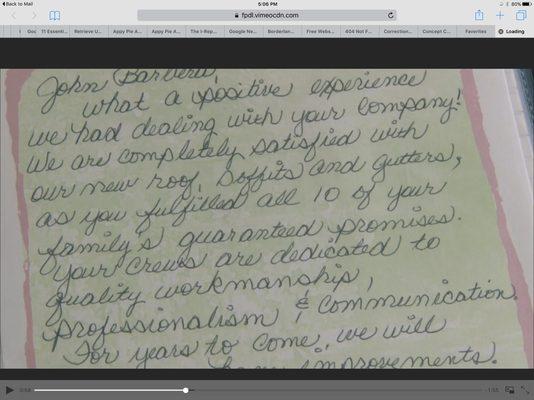 Back to Mail
5:06 PM
80%
fpdl.vimeocdn.com
Goo
11 Essenti...
Retrieve U...
Appy Pie A...
Appy Pie A...
The I-Rep...
Google Ne...
Borderlan...
Free Webs...
404 Not F...
Correction...
Concept C...
Favorites
Loading
John Barbera,
what a positive experience
we had dealing with your Company!
We are completely satisfied with
our new roof, soffits and gutters,
as you fulfilled all 10 of your
family's guaranteed promises.
Your Crews are dedicated to
quality workmanship,
professionalism & communication.
For years to come, we will
home improvements.
0:58
-1:55